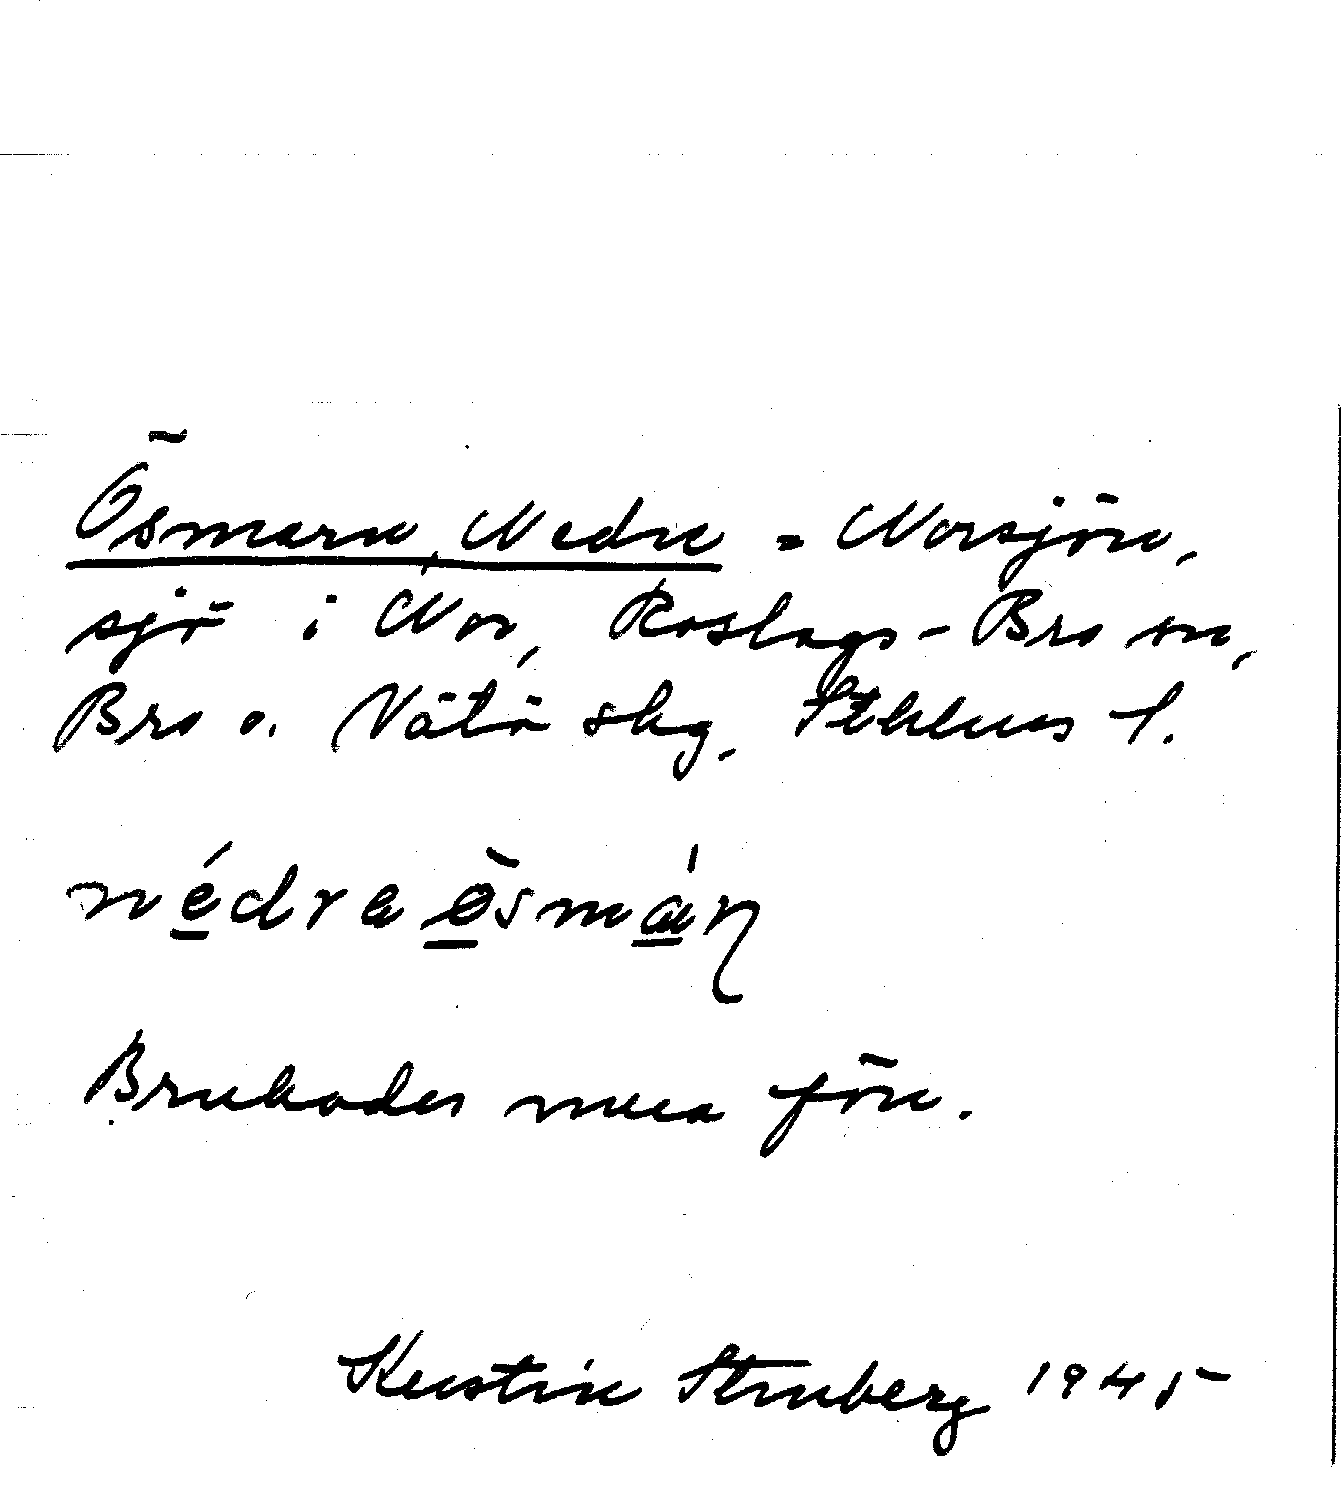 Ösmaren, Nedre = Norsjön,
sjö i Nor, Roslags-Bro sn,
Bro o. Vätö skg, Sthlms l.
nédra ösmáɳ
Brukades mera förr.
Kerstin Struberg 1945